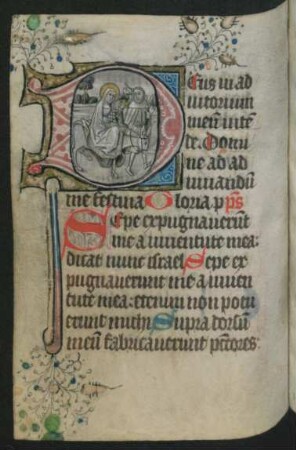 Deus in ad
iutorium
meū intē
de. Domi
ne ad ad
iuuandū
me festina Gloria. p̄ps
Sepe expugnauerūt
me a iuuentute mea:
dicat nunc israel Sepe ex
pugnauerunt me a iuuen
tute mea: etenim non potu
erunt michi Supra dorsū
meū fabricauerunt pctōres: